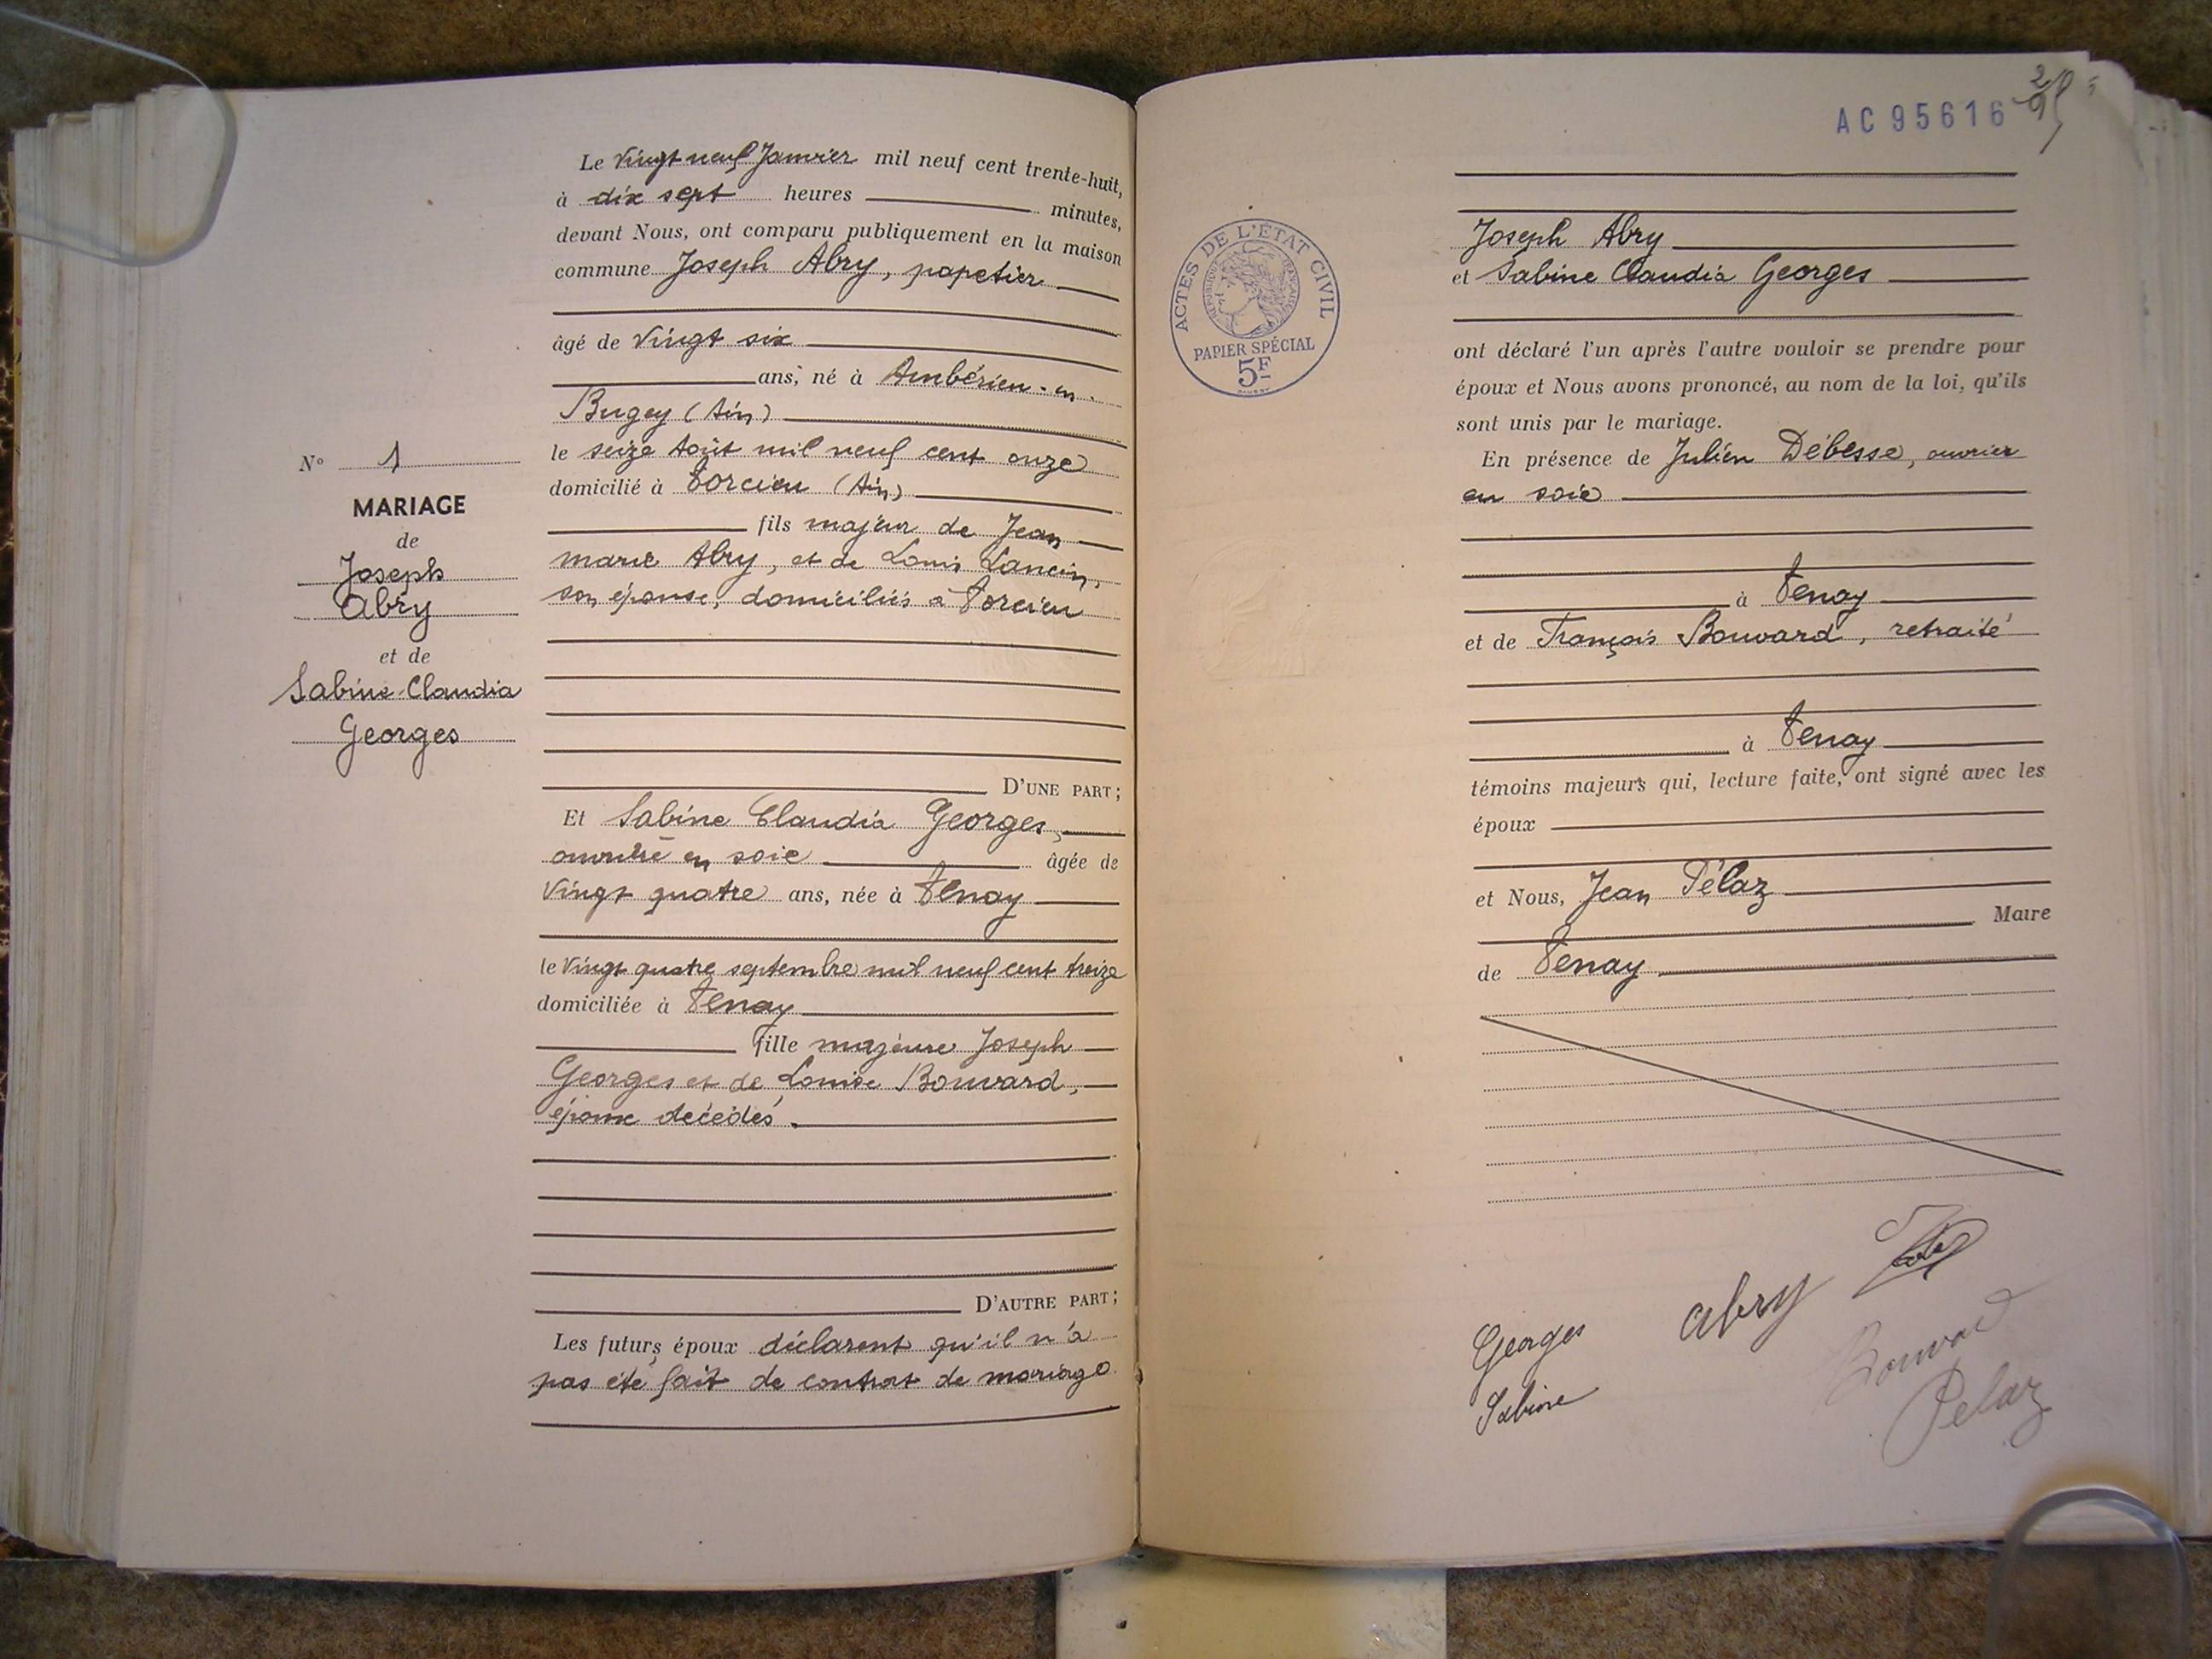 N° 1
MARIAGE
de
Joseph
Abry
et de
Sabine Claudia
Georges
Le vingt neuf Janvier mil neuf cent trente-huit,
à dix sept heures minutes,
devant Nous, ont comparu publiquement en la maison
commune Joseph Abry, papetier
âgé de vingt six
ans, né à Ambérieu-en-
Bugey (Ain)
le seize Août mil neuf cent onze
domicilié à Torcieu (Ain)
fils majeur de Jean
marie Abry, et de Louis Lancin,
son épouse, domiciliés à Torcieu
D'UNE PART;
Et Sabine Claudia Georges,
ouvrière en soie âgée de
vingt quatre ans, née à Tenay
le vingt quatre septembre mil neuf cent treize
domiciliée à Tenay
fille majeure Joseph
Georges et de Louise Bouvard,
décédés.
D'AUTRE PART;
Les futurs époux déclarent qu'il n'a
pas été fait de contrat de mariage
AC 95616
ACTES DE L'ÉTAT CIVIL
RÉPUBLIQUE FRANÇAISE
PAPIER SPÉCIAL
5F
Joseph Abry
et Sabine Claudia Georges
ont déclaré l'un après l'autre vouloir se prendre pour
époux et Nous avons prononcé, au nom de la loi, qu'ils
sont unis par le mariage.
En présence de Julien Débesse, ouvrier
en soie
à Tenay
et de François Bouvard, retraité
à Tenay
témoins majeurs qui, lecture faite, ont signé avec les
époux
et Nous, Jean Pélaz
Maire
de Tenay
Georges
Sabine
abry
Bouvard
Pelaz